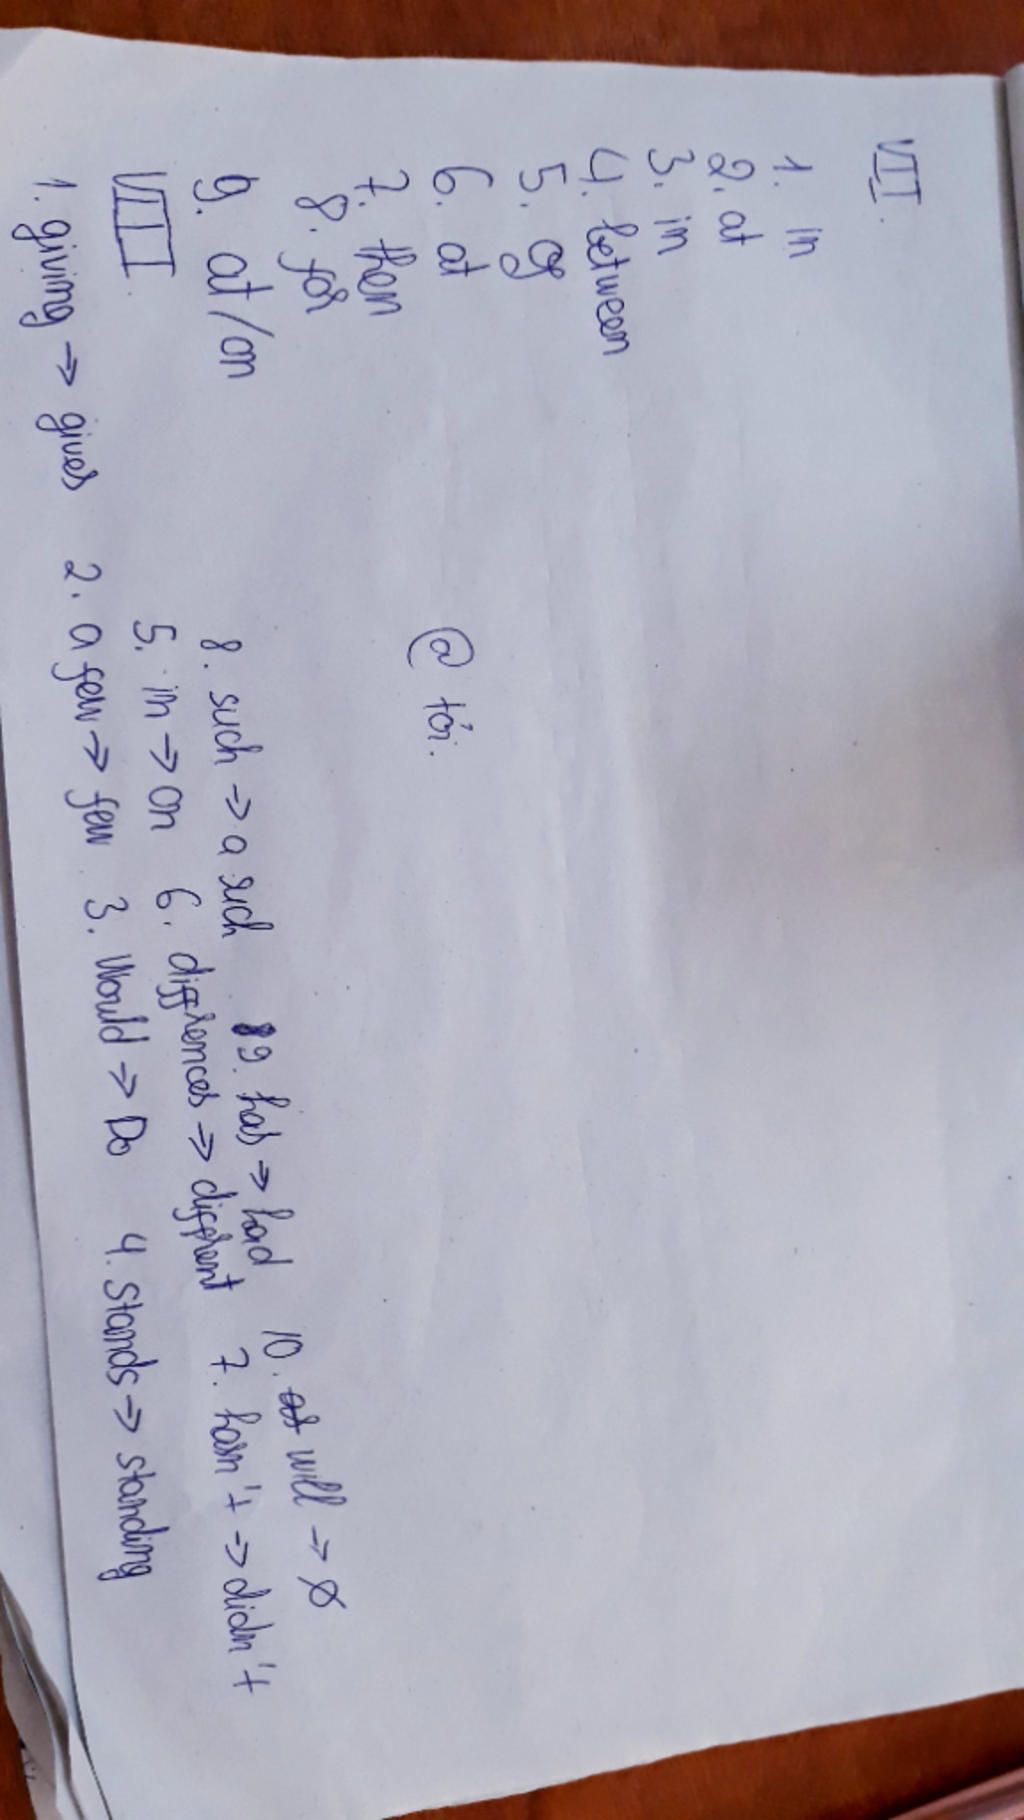 VII.
1. in
2. at
3. in
4. between
5. of
6. at
7. then
8. for
9. at/on
@ tới.
VIII.
1. giving => gives 2. a few => few 3. Would => Do 4. Stands => standing
5. in => on 6. differences => different 7. hasn't => didn't
8. such => a such 9. has => had 10. will -> Ø